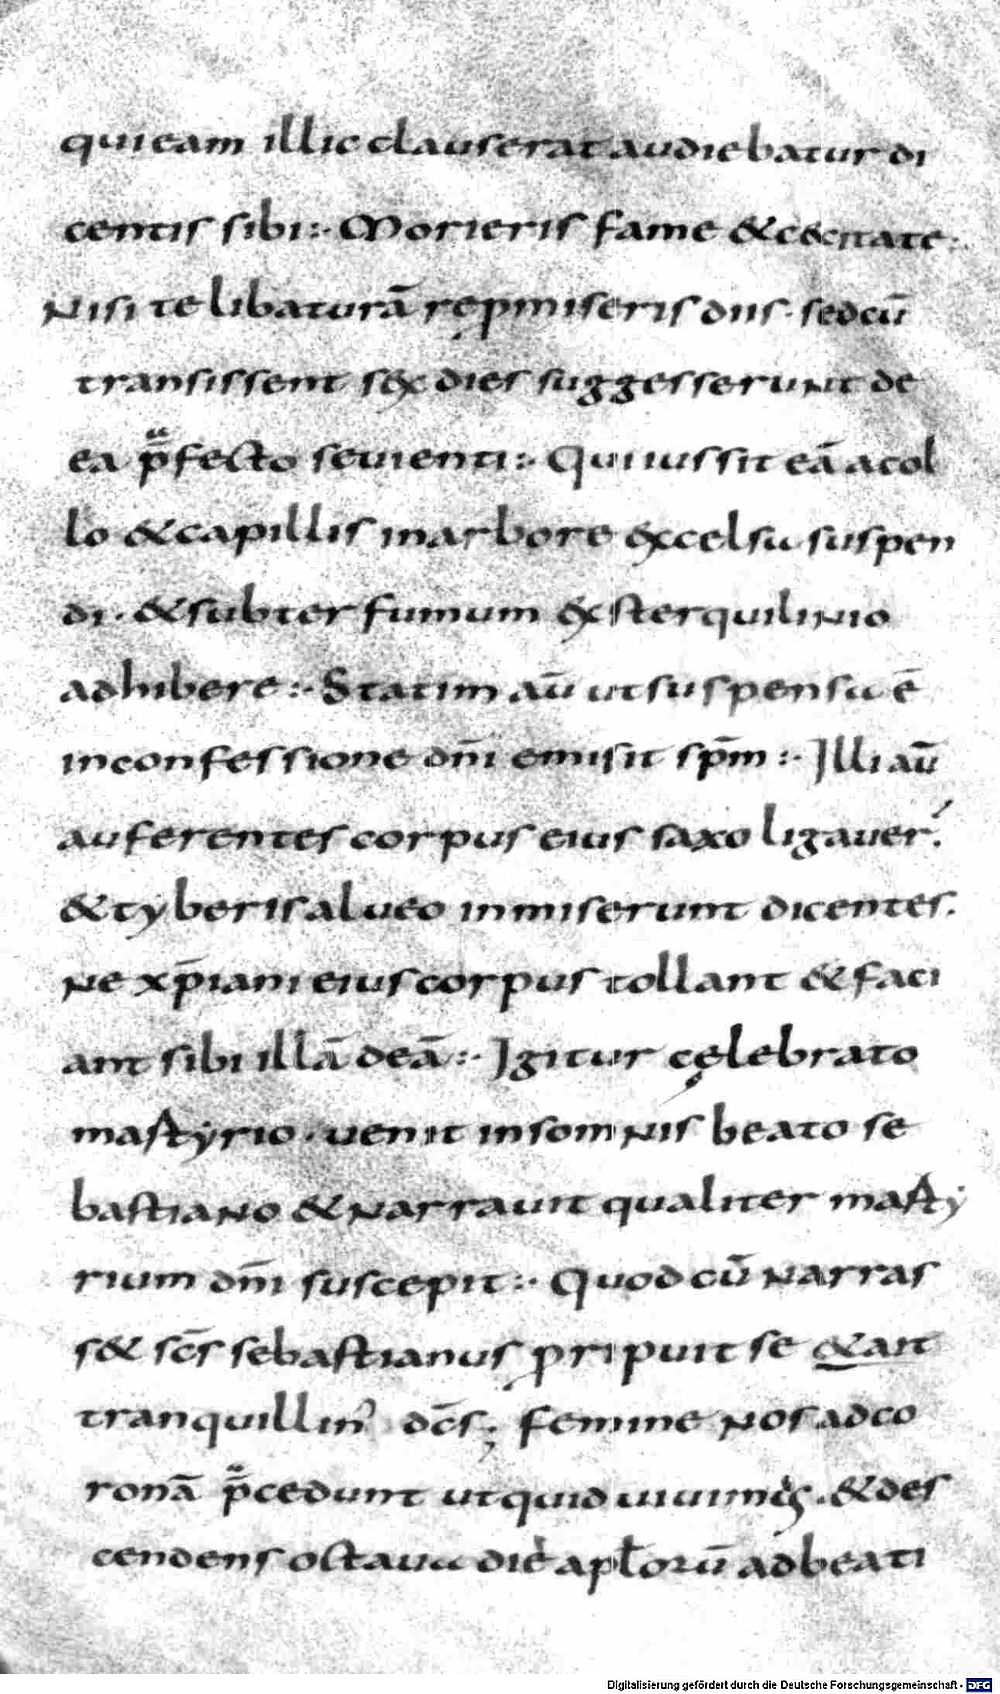 qui eam illic clauserat audiebatur di
centis sibi:· Morieris fame & cęcitate·
Nisi te libaturā rępmiseris diis· sed cū
transissent sex dies suggesserunt de
ea p̄fecto seuienti:· Qui iussit eā a col
lo & capillis in arbore excelsa suspen
di· & subter fumum ex sterquiliNio
adhibere:· Statim aū ut suspensa ē
in confessione dn̄i emisit sp̄m:· Illi aū
auferentes corpus eius saxo ligauer̄·
& tyberis alueo inmiserunt dicentes·
Ne xp̄iani eius corpus tollant & faci
ant sibi illā deā:· Igitur cęlebrato
martẏrio· uenit in somNis beato se
bastiaNo & Narrauit qualiter martẏ
rium dn̄i suscepit:· Quod cū Narras
s& sc̄s sebastianus pripuit se & ait
tranquillin' dc̄s; femine Nos ad co
ronā p̄cedunt ut quid uiuimus·& des
cendens octaua die apl̄orū ad beati
Digitalisierung gefördert durch die Deutsche Forschungsgemeinschaft - DFG